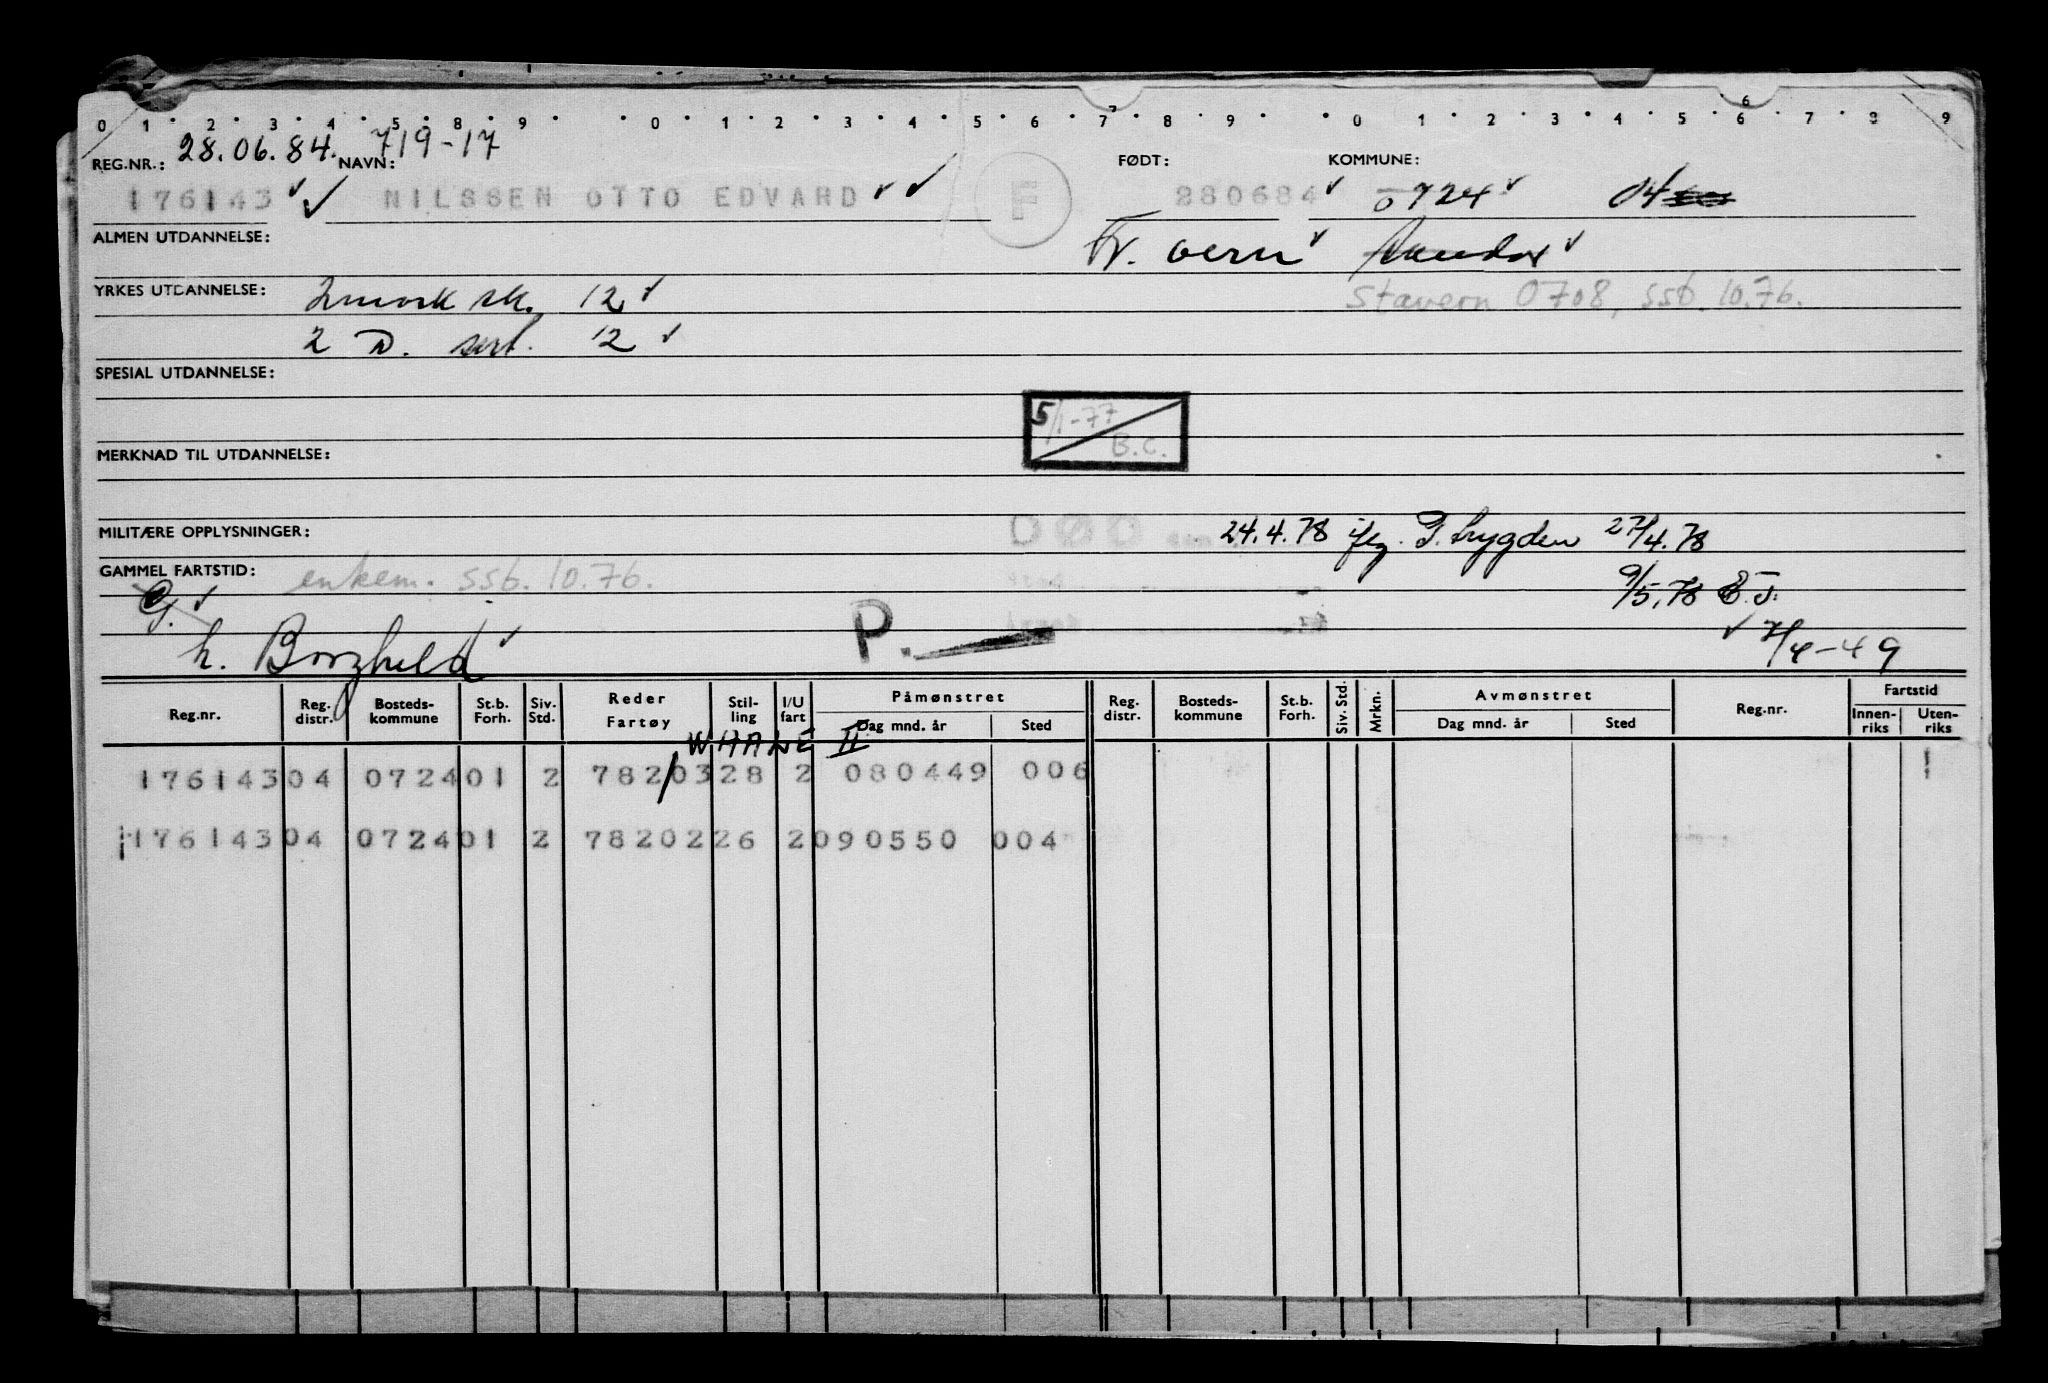 0 1 2 3 4 5 8 9 0 1 2 3 4 5 6 7 8 9 0 1 2 3 4 5 6 7 8 9
28.06.84. 719-17
REG.NR.: NAVN: FØDT: KOMMUNE:
176143 NILSSEN OTTO EDVARD F 280684 0724 04
ALMEN UTDANNELSE:
Fr. vern
YRKES UTDANNELSE: sk. 12 Stavern 0708, ssb. 10.76.
2 D. sert. 12
SPESIAL UTDANNELSE:
5/1-77
B.C.
MERKNAD TIL UTDANNELSE:
MILITÆRE OPPLYSNINGER: DØD 24.4.78 iflg. P. trygden 27/4.78
GAMMEL FARTSTID: enkem. ssb. 10.76.
9/5.78 E.J.
G.
h. Borghild P. 7/4-49
Reg.nr. Reg. distr. Bosteds-kommune St.b. Forh. Siv. Std. Reder Fartøy Stil-ling I/U fart Påmønstret Dag mnd. år Sted Reg. distr. Bosteds-kommune St.b. Forh. Siv. Std. Mrkn. Avmønstret Dag mnd. år Sted Reg.nr. Fartstid Innen-riks Uten-riks
WHALE II
176143 04 0724 01 2 782/03 28 2 080449 006
176143 04 0724 01 2 78202 26 2 090550 004